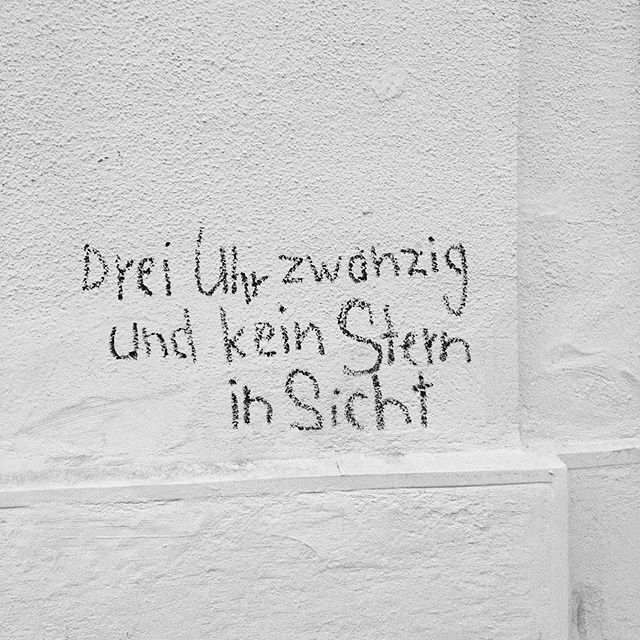 Drei Uhr zwanzig
und kein Stern
in Sicht